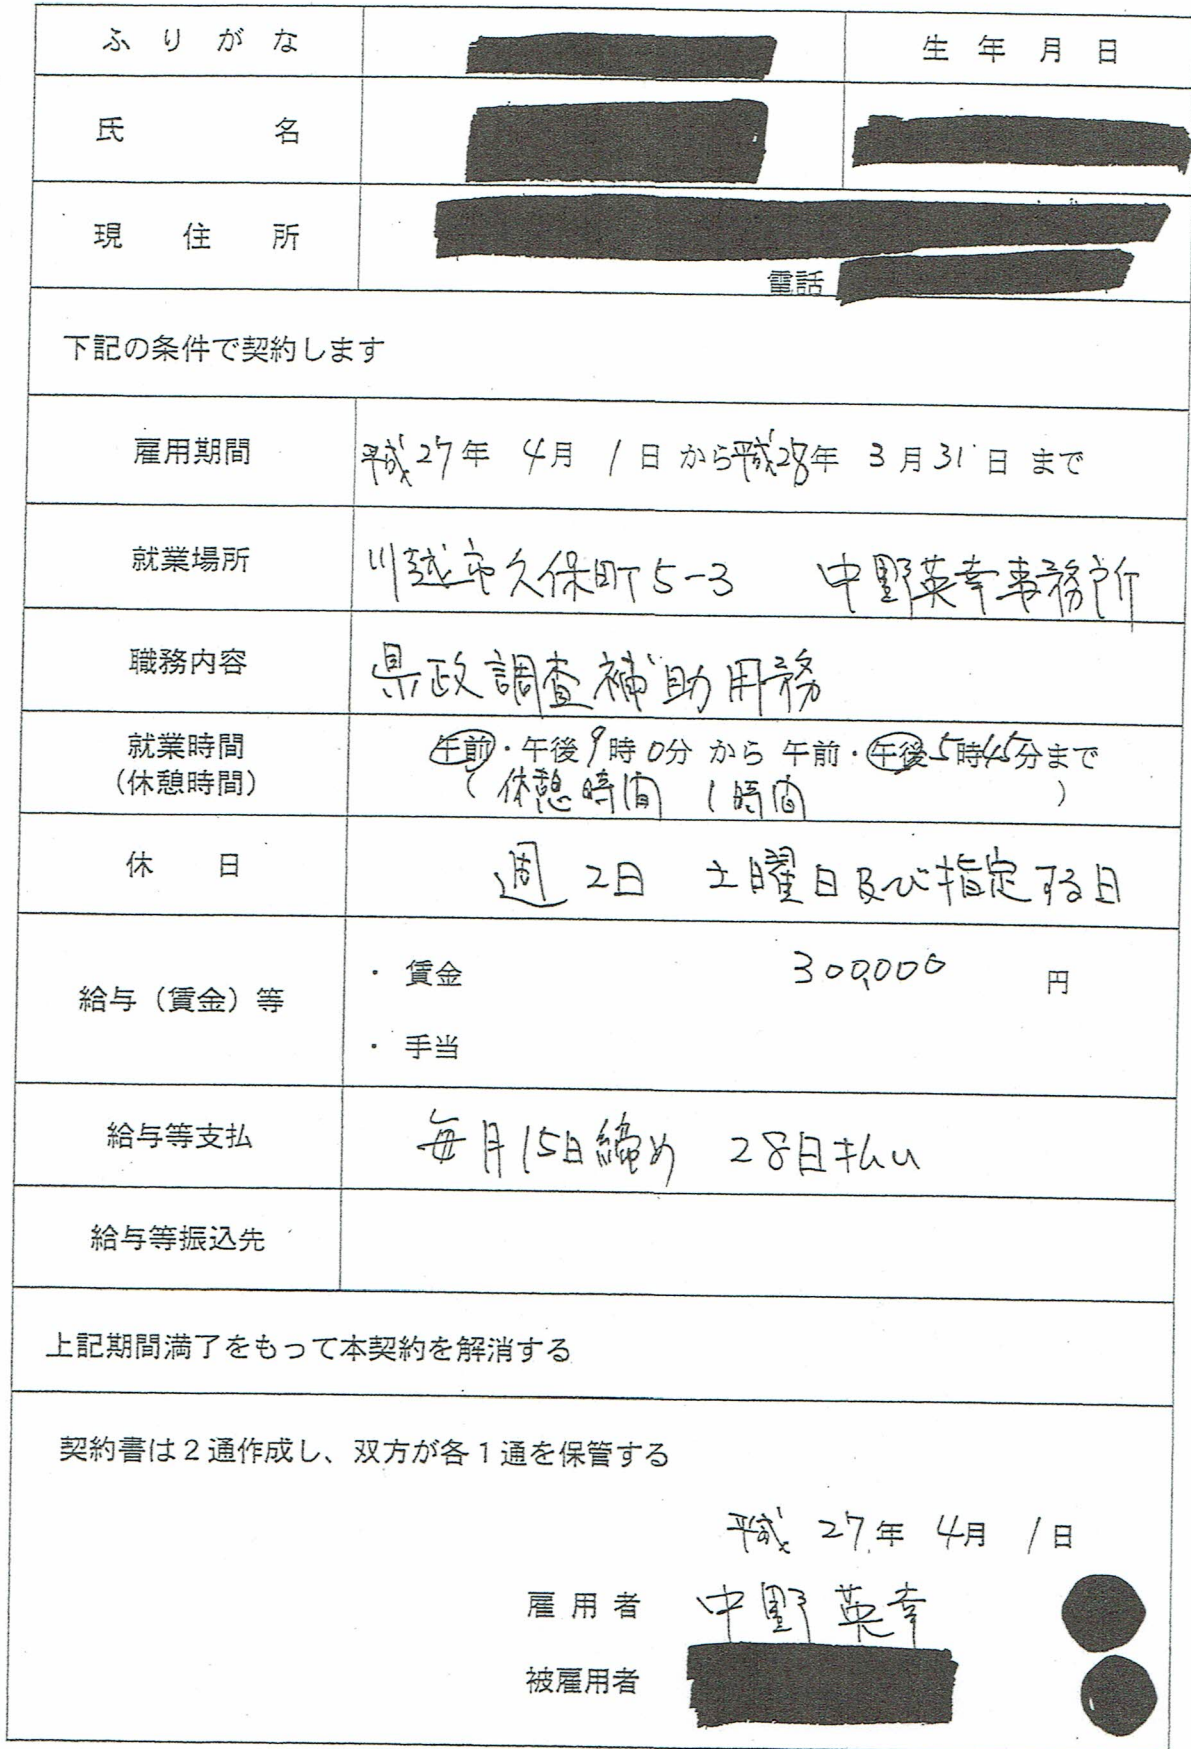 ふりがな
生年月日
氏名
現住所
電話
下記の条件で契約します
雇用期間 平成27年 4月 1日 から平成28年 3月31日 まで
就業場所 川越市久保町5-3 中野英幸事務所
職務内容 県政調査補助用務
就業時間 午前・午後9時0分 から 午前・午後5時45分まで
(休憩時間) (休憩時間 1時間)
休日 週2日 土曜日及び指定する日
給与(賃金)等 ・賃金 300,000 円
・手当
給与等支払 毎月15日締め 28日払い
給与等振込先
上記期間満了をもって本契約を解消する
契約書は2通作成し、双方が各1通を保管する
平成 27年 4月 1日
雇用者 中野英幸
被雇用者